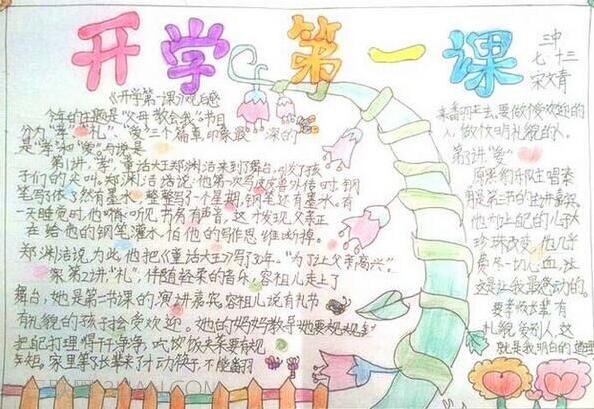 开学第一课
三中
七·十三
宋文青
《开学第一课》观后感
今年的主题是“父母教会我”,节目
分为“孝”、“礼”、“爱”三个篇章,印象最深的
是“孝”和“爱”
第1讲,“孝”,童话大王郑渊洁来到了舞台,引发了孩
子们的尖叫。郑渊洁洁说:他第一次写
钢
笔写了很久然有墨水,整整写了一个星期,钢笔还有墨水,有
一天睡觉时,他悄听见书房有声音,这才发现,父亲正
在给他的钢笔灌水,怕他的写作思维断掉。
郑渊洁说,为此,他把《童话大王》写了30年。“为了让父亲高兴”。
第2讲,“礼”,伴随轻柔的音乐,容祖儿走上了
舞台,她是第一节课的演讲嘉宾。容祖儿说有礼节
有礼貌的孩子才会受欢迎。她的妈妈教导她要规规矩
把自己打理得干干净净,吃饭夹菜要有规
矩,家里等长辈来了才动筷子,不能翻
来翻去,要做个受欢迎的
人,做个文明礼貌的人。
第3讲“爱”
原来
唱
是第三节的
他为让自己的儿子
他几乎
费尽一切心血,
这是让我最感动的。
要孝敬长辈,有
礼貌,爱别人,这
就是我明白的道理